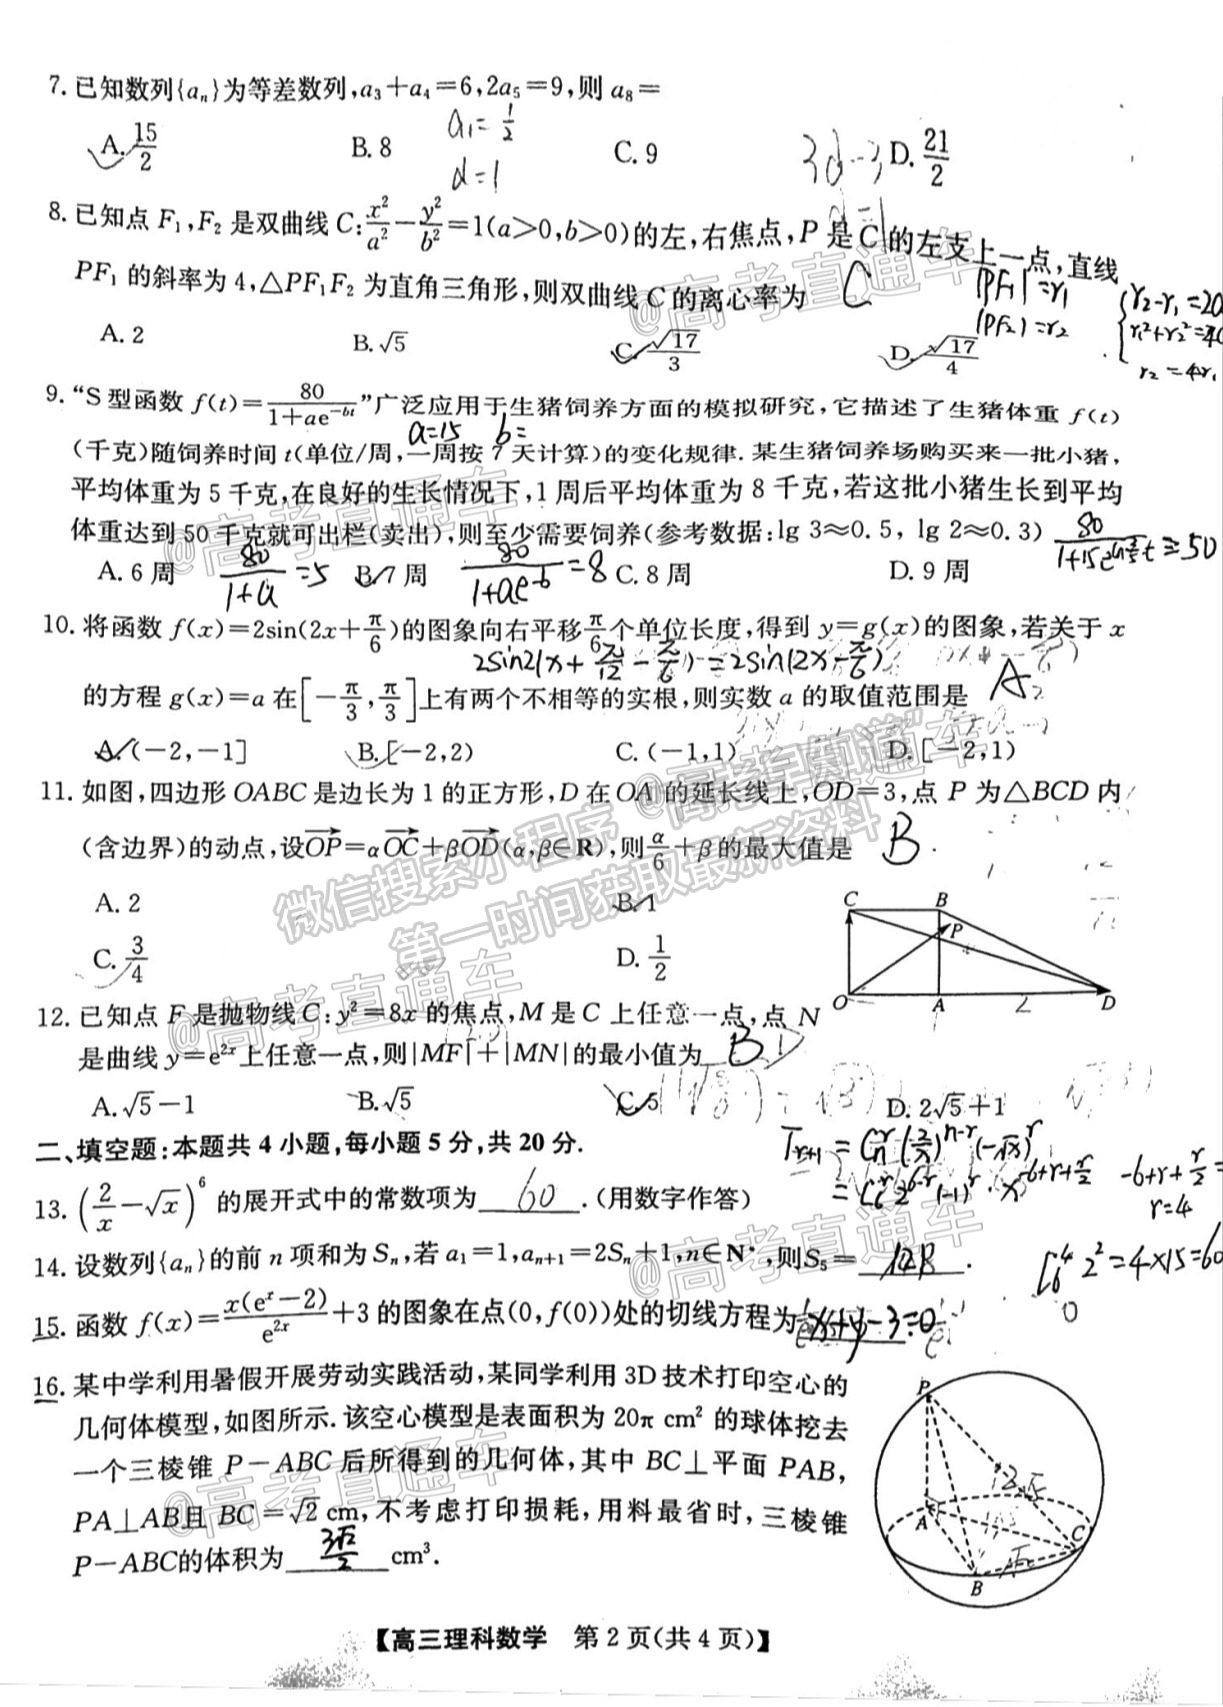 7. 已知数列{aₙ}为等差数列,a₃+a₄=6,2a₅=9,则 a₈=
a₁=1/2
A. 15/2 B. 8 C. 9 3d=3 D. 21/2
d=1 d=1
8. 已知点 F₁,F₂ 是双曲线 C: x²/a² − y²/b² =1(a>0,b>0)的左,右焦点,P 是 C 的左支上一点,直线
PF₁ 的斜率为 4,△PF₁F₂ 为直角三角形,则双曲线 C 的离心率为 C |PF₁|=r₁ r₂-r₁=2a
|PF₂|=r₂ r₁²+r₂²=4c
A. 2 B. √5 C. √17/3 D. √17/4 r₂=4r₁
9. “S 型函数 f(t)= 80/(1+ae^{-bt}) ”广泛应用于生猪饲养方面的模拟研究,它描述了生猪体重 f(t)
a=15 b=
(千克)随饲养时间 t(单位/周,一周按 7 天计算)的变化规律. 某生猪饲养场购买来一批小猪,
平均体重为 5 千克,在良好的生长情况下,1 周后平均体重为 8 千克,若这批小猪生长到平均
体重达到 50 千克就可出栏(卖出),则至少需要饲养(参考数据:lg 3≈0.5, lg 2≈0.3)
A. 6 周 80/(1+a)=5 B. 7 周 80/(1+ae^{-b})=8 C. 8 周 D. 9 周
10. 将函数 f(x)=2sin(2x+π/6)的图象向右平移 π/6 个单位长度,得到 y=g(x)的图象,若关于 x
2sin2(x+π/12-π/6)=2sin(2x-π/6)
的方程 g(x)=a 在[−π/3, π/3]上有两个不相等的实根,则实数 a 的取值范围是 A
A. (−2,−1] B. [−2,2) C. (−1,1) D. [−2,1)
11. 如图,四边形 OABC 是边长为 1 的正方形,D 在 OA 的延长线上,OD=3,点 P 为△BCD 内
(含边界)的动点,设OP=αOC+βOD(α,β∈R),则 α/6 +β 的最大值是 B
A. 2 B. 1
C. 3/4 D. 1/2
C B P O A 2 D
12. 已知点 F 是抛物线 C:y²=8x 的焦点,M 是 C 上任意一点,点 N
是曲线 y=e²ˣ上任意一点,则|MF|+|MN|的最小值为 B
A. √5−1 B. √5 C. 5 D. 2√5+1
二、填空题:本题共 4 小题,每小题 5 分,共 20 分.
T_{r+1}=C_n^r(2/x)^{n-r}(-√x)^r
13. (2/x−√x)⁶ 的展开式中的常数项为 60 .(用数字作答)
=C_6^r 2^{6-r}(-1)^r·x^{-6+r+r/2} -6+r+r/2=
r=4
14. 设数列{aₙ}的前 n 项和为 Sₙ,若 a₁=1,aₙ₊₁=2Sₙ+1,n∈N*,则S₅= .
C_6^4 2²=4×15=60
15. 函数 f(x)= x(eˣ−2)/e²ˣ +3 的图象在点(0,f(0))处的切线方程为 x+y-3=0
16. 某中学利用暑假开展劳动实践活动,某同学利用 3D 技术打印空心的
几何体模型,如图所示. 该空心模型是表面积为 20π cm² 的球体挖去
一个三棱锥 P−ABC 后所得到的几何体,其中 BC⊥平面 PAB,
PA⊥AB且 BC=√2 cm,不考虑打印损耗,用料最省时,三棱锥
P−ABC的体积为 3√2/2 cm³.
P A B C
【高三理科数学 第 2 页(共 4 页)】
@高考直通车
微信搜索小程序“高考直通车”
第一时间获取最新资料
@高考直通车
@高考直通车
@高考直通车
@高考直通车
@高考直通车